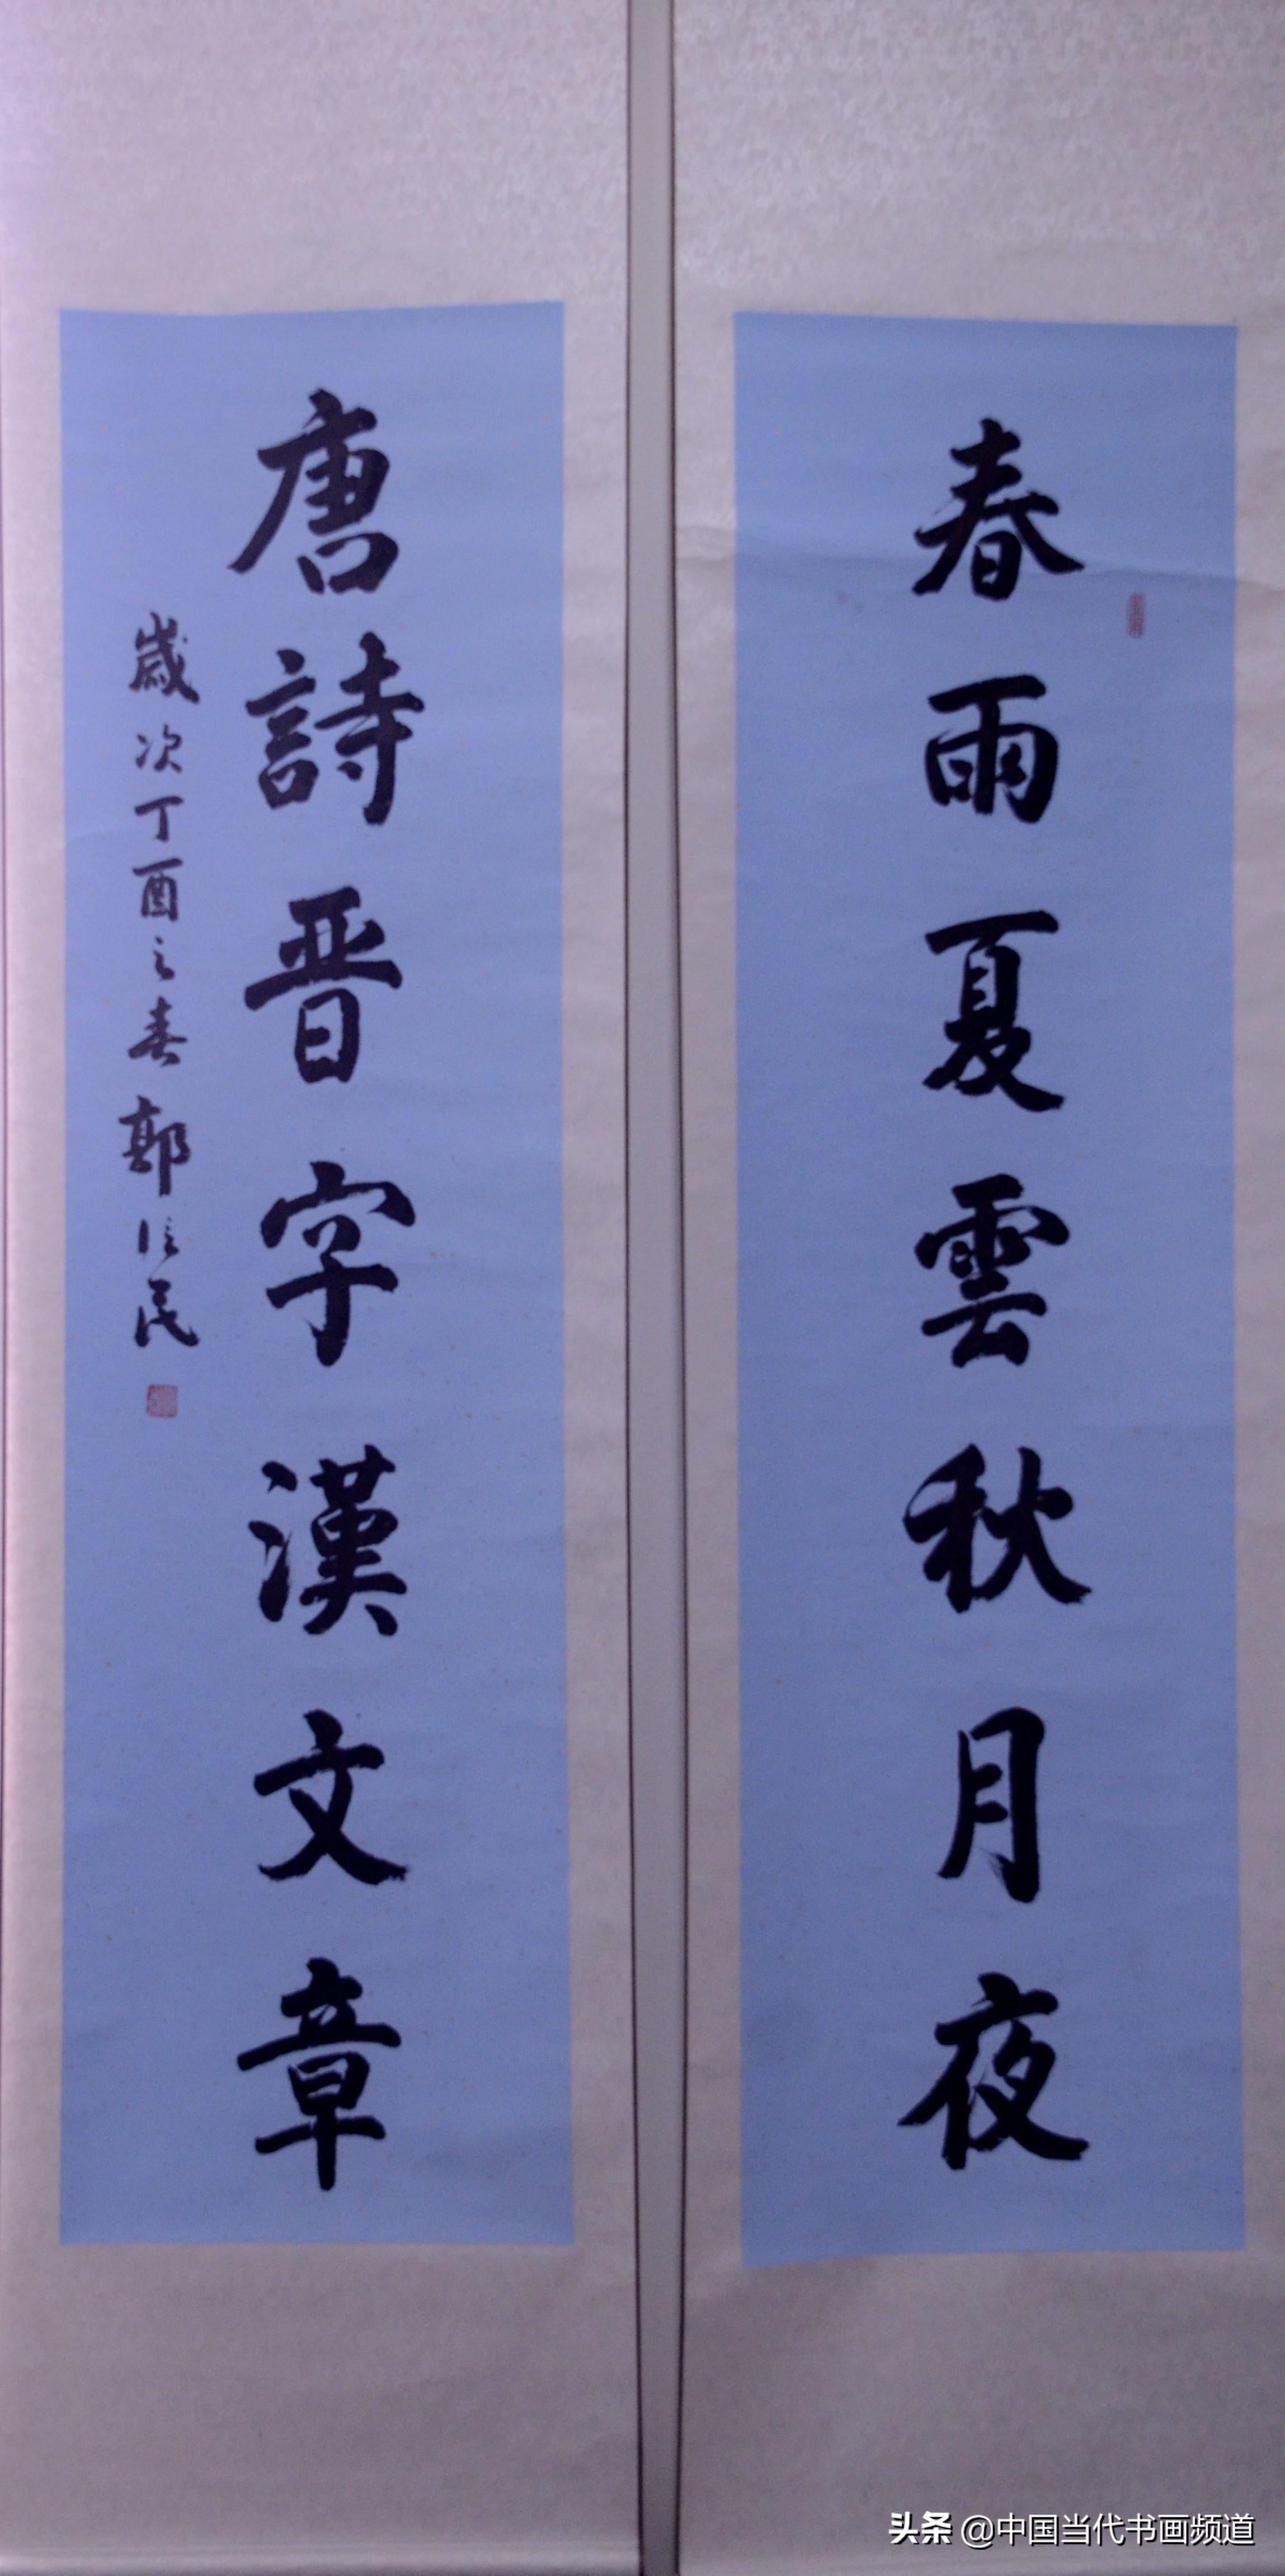 春雨夏雲秋月夜
唐詩晋字漢文章
歲次丁酉之春郭信民
头条 @中国当代书画频道